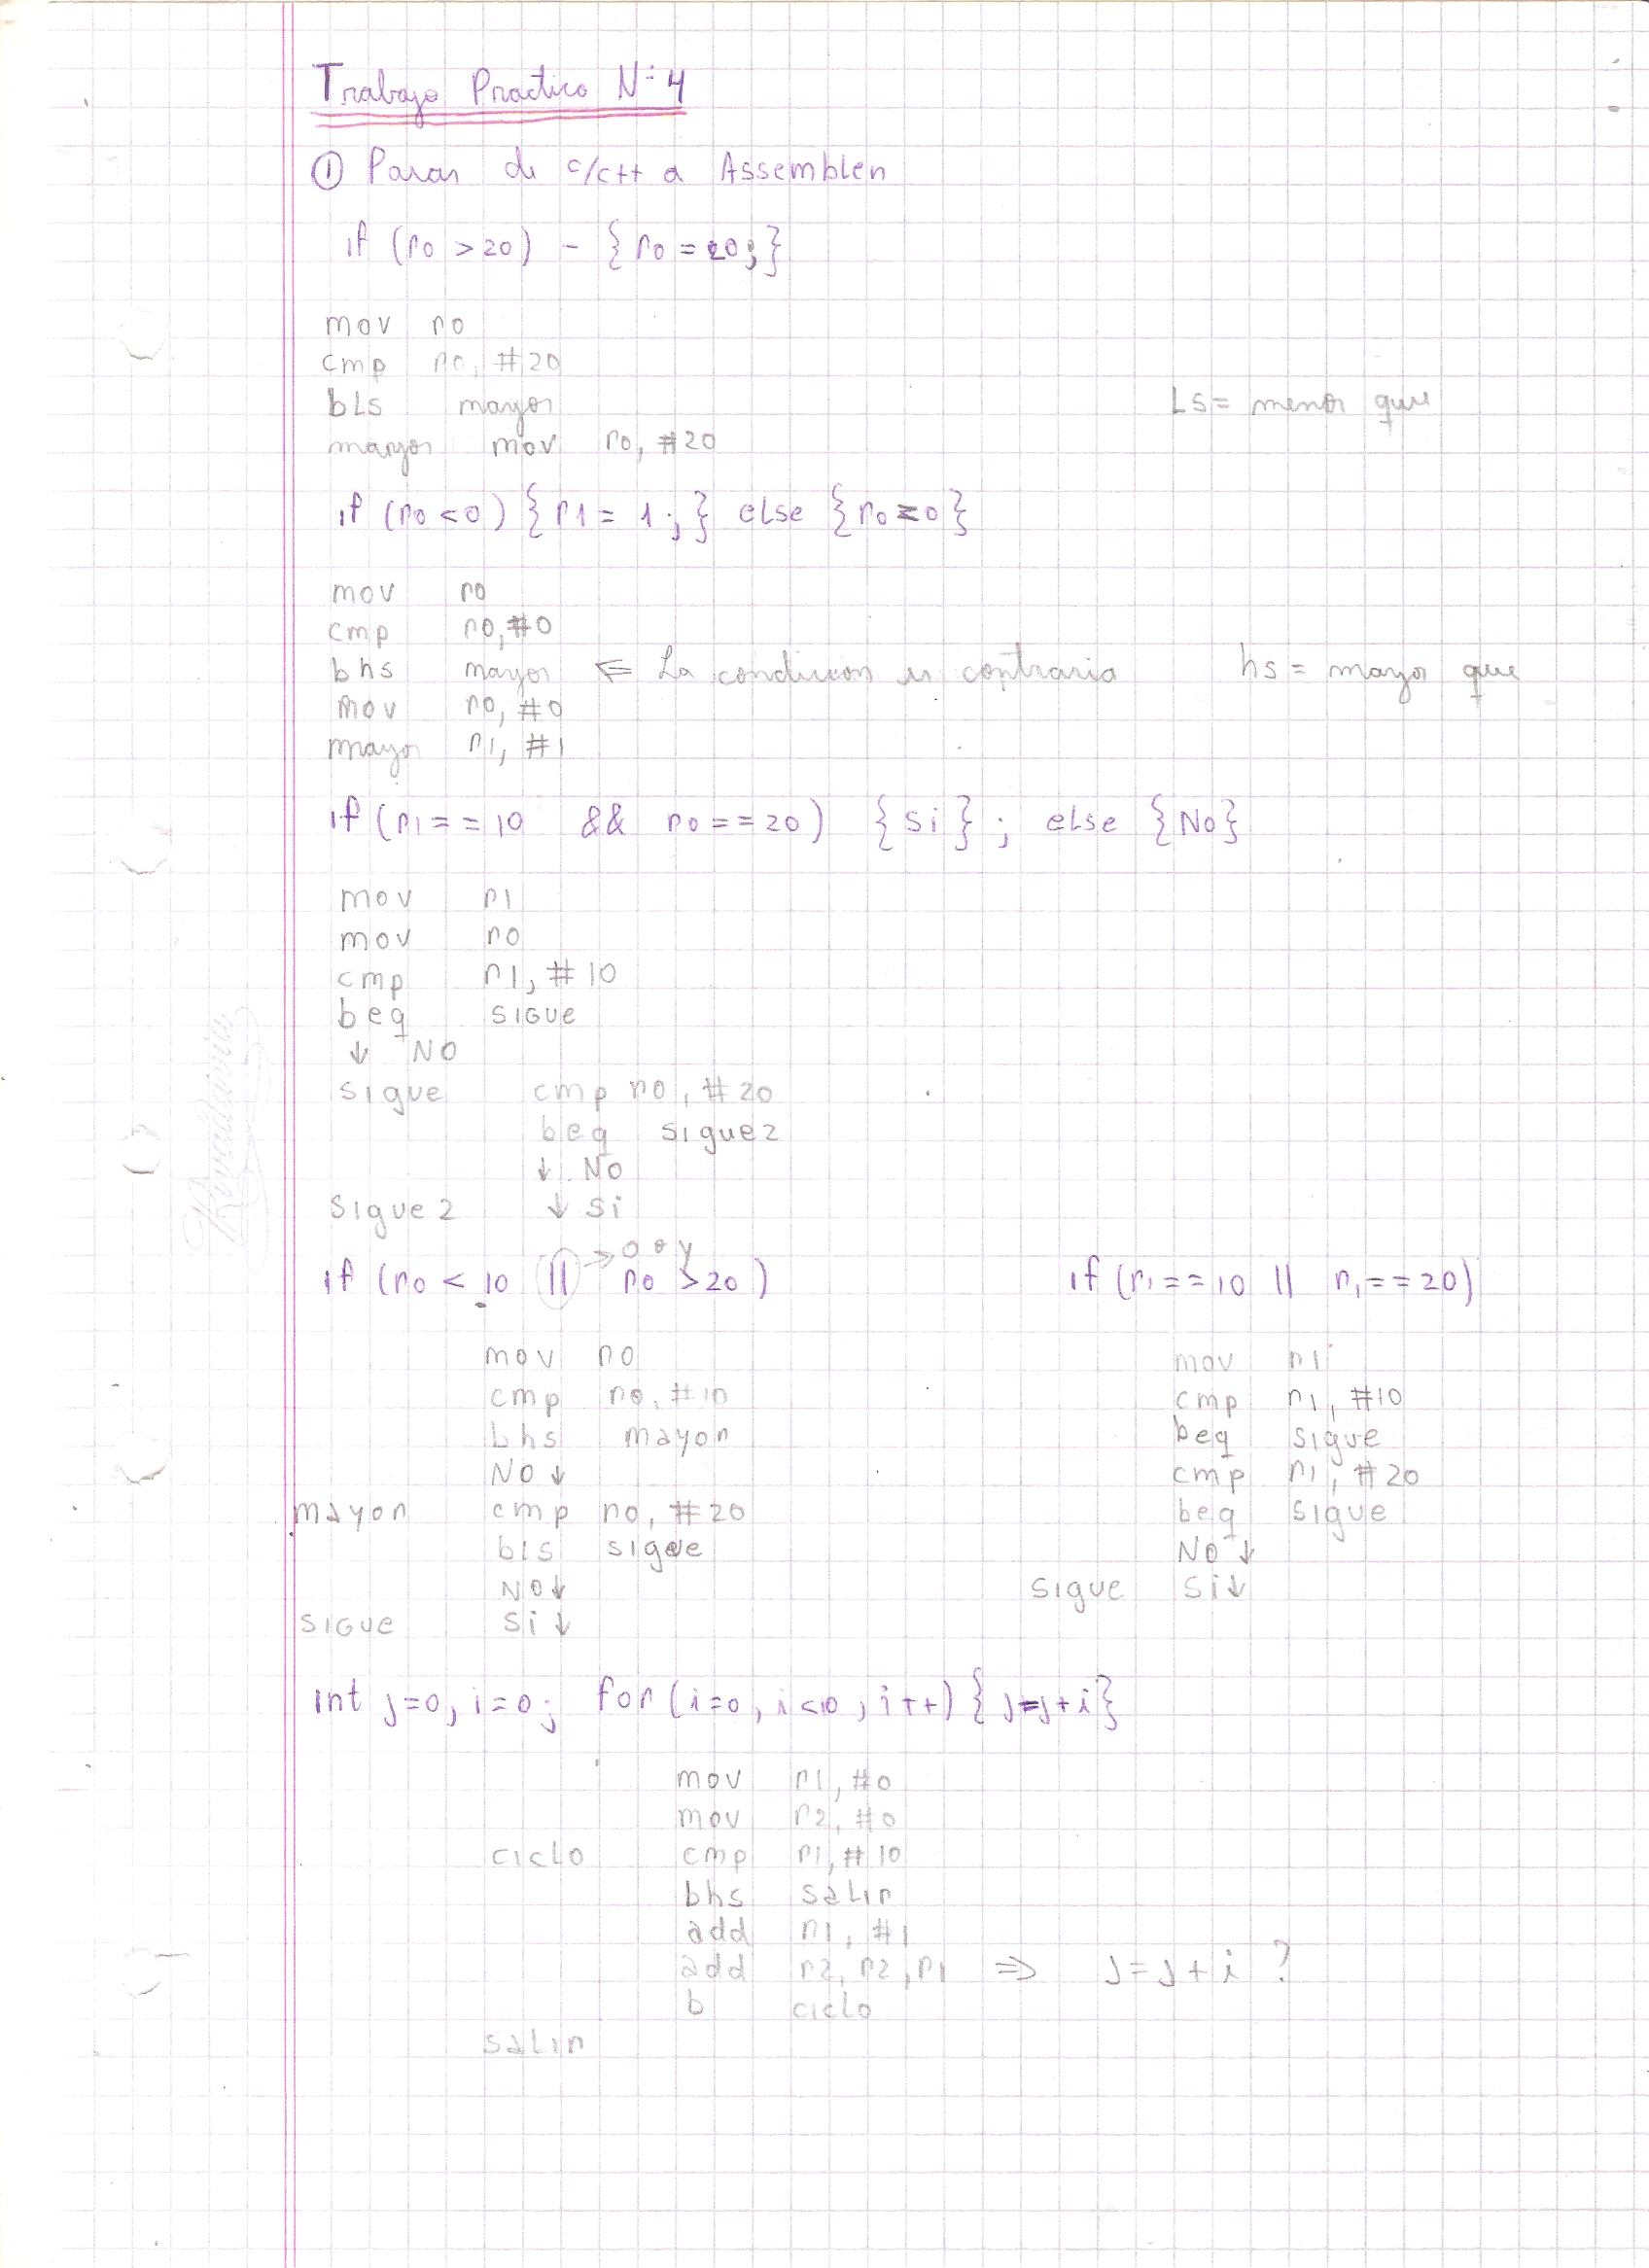 Trabajo Practico N° 4
① Pasar de c/c++ a Assembler
if (r0 > 20) - { r0 = 20; }
mov r0
cmp r0, #20
bLs mayor Ls = menor que
mayor mov r0, #20
if (r0 < 0) { r1 = 1; } else { r0 = 0 }
mov r0
cmp r0, #0
bhs mayor ⇐ La condicion es contraria hs = mayor que
mov r0, #0
mayor r1, #1
if (r1 == 10 && r0 == 20) { Si } ; else { No }
mov r1
mov r0
cmp r1, #10
beq SIGUE
↓ NO
sigue cmp r0, #20
beq sigue2
↓ No
Sigue 2 ↓ Si
→ O o y
if (r0 < 10 || r0 > 20)
mov r0
cmp r0, #10
bhs mayor
NO ↓
mayor cmp r0, #20
bls sigue
NO ↓
SIGUE Si ↓
if (r1 == 10 || r1 == 20)
mov r1
cmp r1, #10
beq sigue
cmp r1, #20
beq sigue
NO ↓
sigue Si ↓
int j=0, i=0; for (i=0, i<10, i++) { j=j+i }
mov r1, #0
mov r2, #0
ciclo cmp r1, #10
bhs salir
add r1, #1
add r2, r2, r1 ⇒ j = j + i ?
b ciclo
salir
Rivadavia